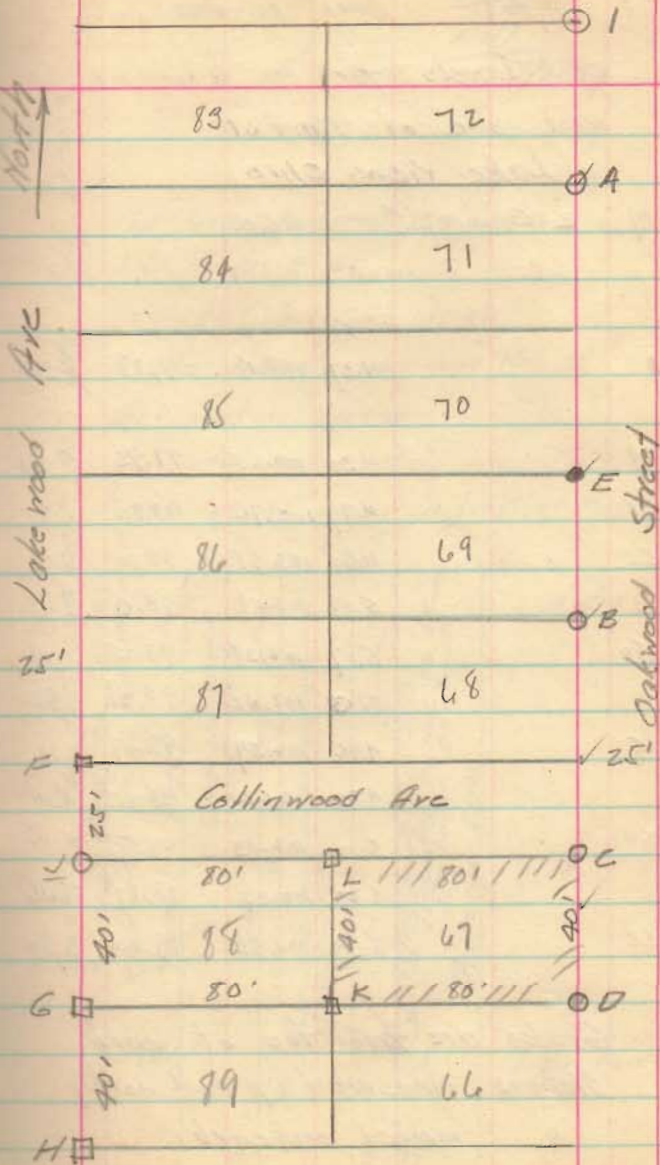 1
North
83 72
A
84 71
Lakewood Ave
85 70
E
Oakwood Street
86 69
B
25'
87 68
F 25'
Collinwood Ave
25'
K C
80' L 80'
40' 88 40' 67 40'
G 80' K 80' D
40' 89 66
H